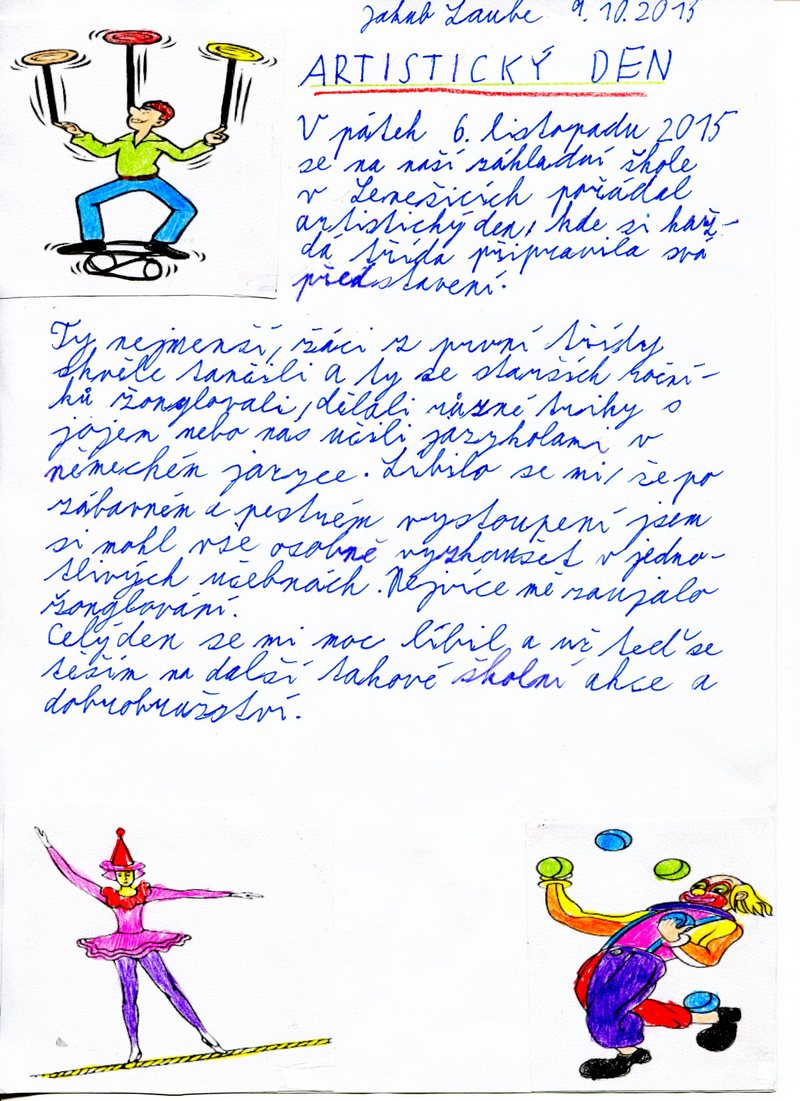 Jakub Laube 9.10.2015
ARTISTICKÝ DEN
V pátek 6. listopadu 2015
se na naší základní škole
v Lenešicích pořádal
artistický den, kde si kaž-
dá třída připravila svá
představení.
Ty nejmenší, žáci z první třídy
skvěle tančili a ty se starších roční-
ků žonglovali, dělali různé triky s
jojem nebo nás učili jazykolami v
německém jazyce. Líbilo se mi, že po
zábavném a pestrém vystoupení jsem
si mohl vše osobně vyzkoušet v jedno-
tlivých učebnách. Nejvíce mě zaujalo
žonglování.
Celý den se mi moc líbil a už teď se
těším na další takové školní akce a
dobrobružství.